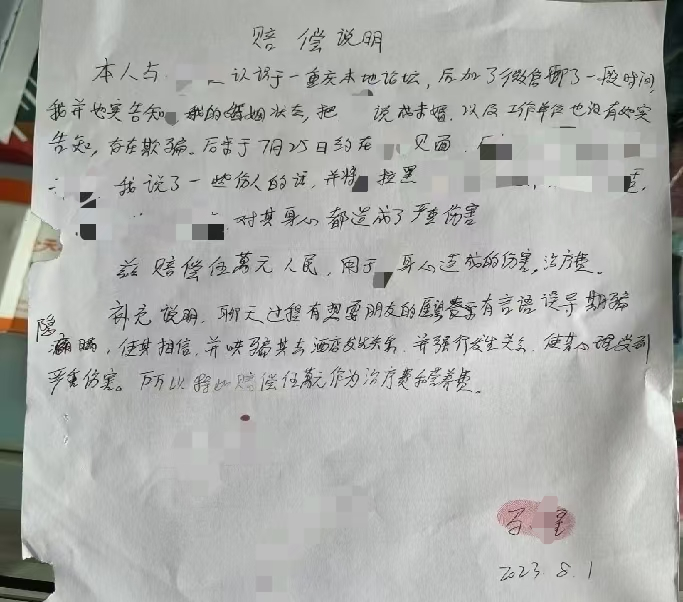 赔偿说明
本人与 认识于一重庆本地论坛,后加了微信聊了一段时间,
我并如实告知 我的婚姻状态,把 说成未婚.以及工作单位也没有如实
告知,存在欺骗.后来于7月25日约在 见面.
我说了一些伤人的话,并将 拉黑
对其身心都造成了严重伤害
兹赔偿伍萬元人民,用于 身心造成的伤害,治疗费.
补充说明,聊天过程有想要朋友的 有言语误导期骗
隐瞒,使其相信,并哄骗其去酒店发生关系,并强行发生关系.使其心理受到
严重伤害. 赔偿伍萬元作为治疗费和营养费。
2023.8.1